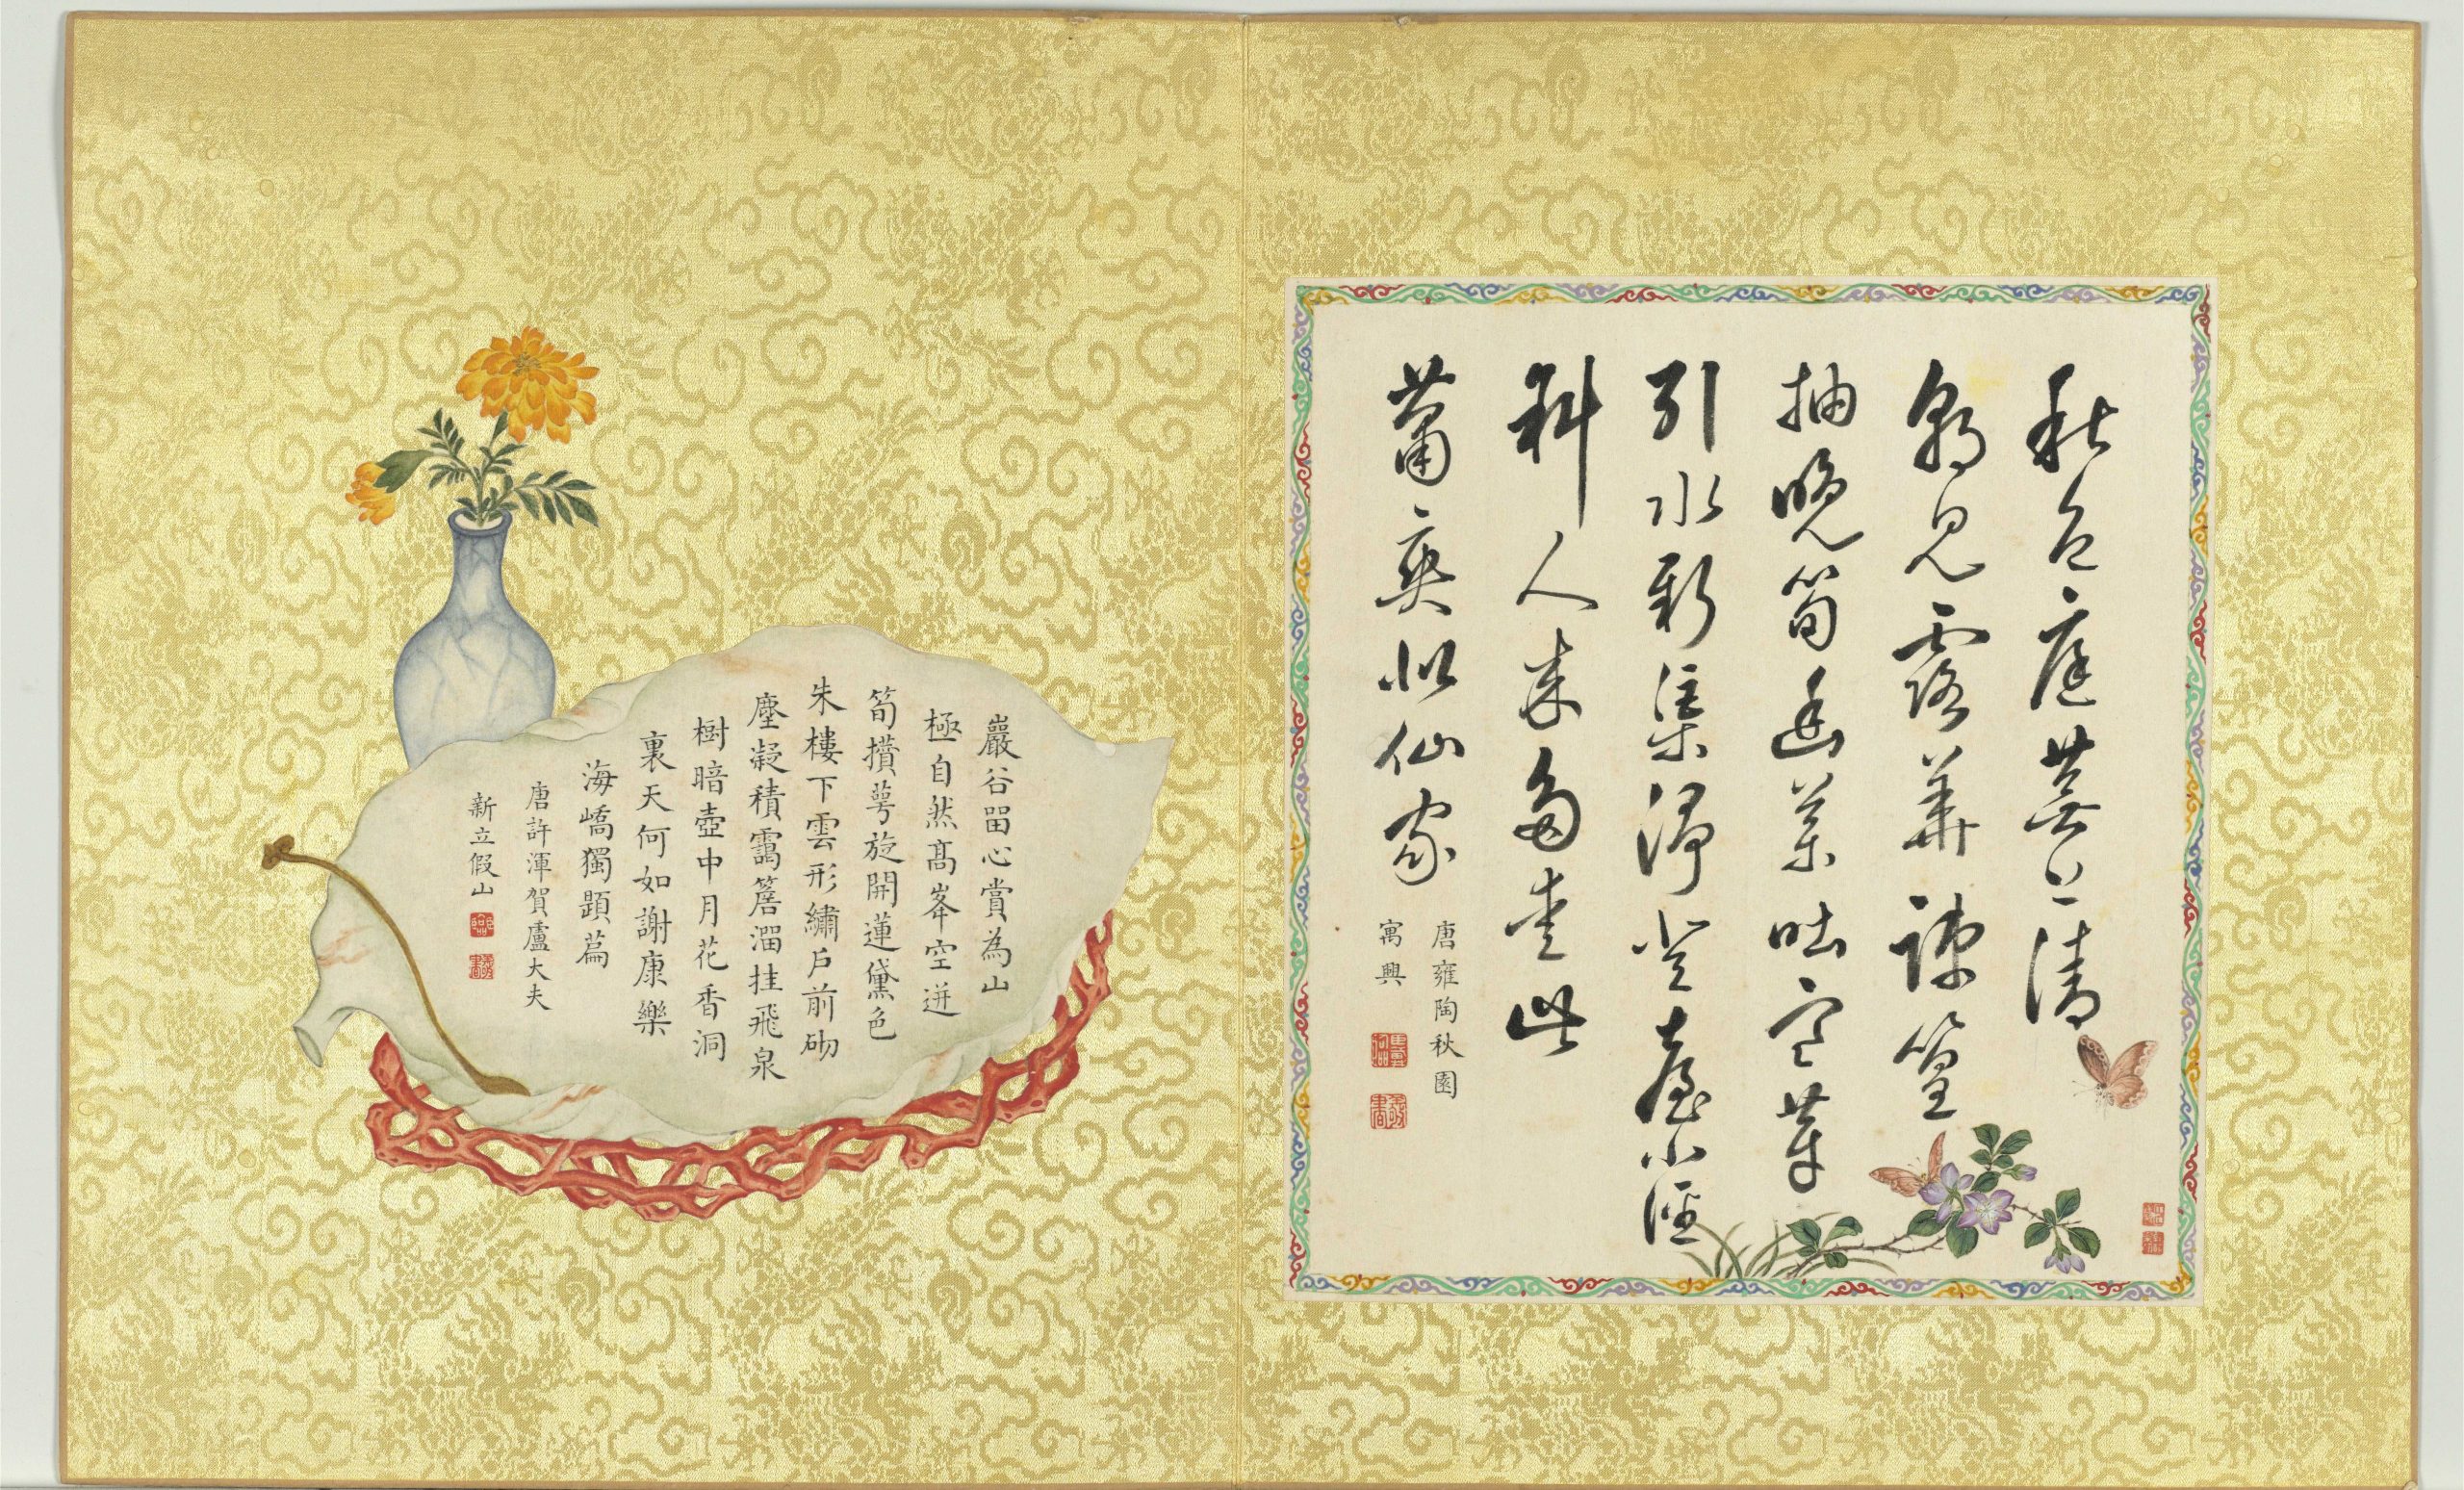 秋色庭蕪上清
朝見露華疎篁
抽晚筍幽藥吐寒芽
引水新渠淨登臺小徑
斜人來多愛此
蕭爽似仙家
唐雍陶秋園
寓興
巖谷留心賞為山
極自然髙峯空迸
筍攢萼旋開蓮黛色
朱樓下雲形繡戶前砌
塵凝積靄簷溜挂飛泉
樹暗壺中月花香洞
裏天何如謝康樂
海嶠獨題篇
唐許渾賀盧大夫
新立假山